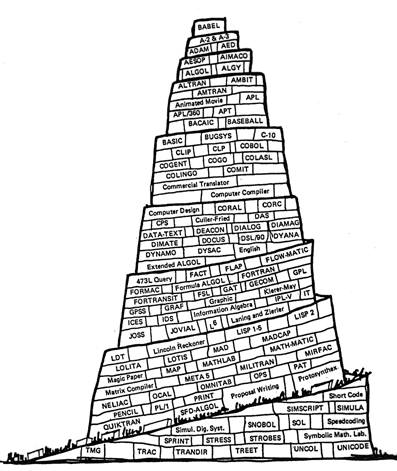 BABEL
A-2 & A-3
ADAM AED
AESOP AIMACO
ALGOL ALGY
ALTRAN AMBIT
AMTRAN
Animated Movie APL
APL/360 APT
BACAIC BASEBALL
BASIC BUGSYS C-10
CLIP CLP COBOL
COGENT COGO COLASL
COLINGO COMIT
Commercial Translator
Computer Compiler
Computer Design CORAL CORC
CPS Culler-Fried DAS
DATA-TEXT DEACON DIALOG DIAMAG
DIMATE DOCUS DSL/90 DYANA
DYNAMO DYSAC English
Extended ALGOL FLOW-MATIC
473L Query FACT FLAP FORTRAN
FORMAC Formula ALGOL GECOM GPL
FORTRANSIT FSL GAT
GPSS GRAF Graphic Klerer-May
ICES IDS Information Algebra IPL-V IT
JOSS JOVIAL L6 Laning and Zierler
LDT Lincoln Reckoner LISP 1-5 LISP 2
LOLITA LOTIS MAD MADCAP
Magic Paper MAP MATHLAB MATH-MATIC
Matrix Compiler META 5 MILITRAN MIRFAC
NELIAC OCAL OMNITAB OPS PAT
PENCIL PL/1 PRINT Proposal Writing Protosynthex
QUIKTRAN SFD-ALGOL Short Code
Simul. Dig. Syst. SNOBOL SIMSCRIPT SIMULA
SPRINT STRESS STROBES SOL Speedcoding
Symbolic Math. Lab.
TMG TRAC TRANDIR TREET UNCOL UNICODE